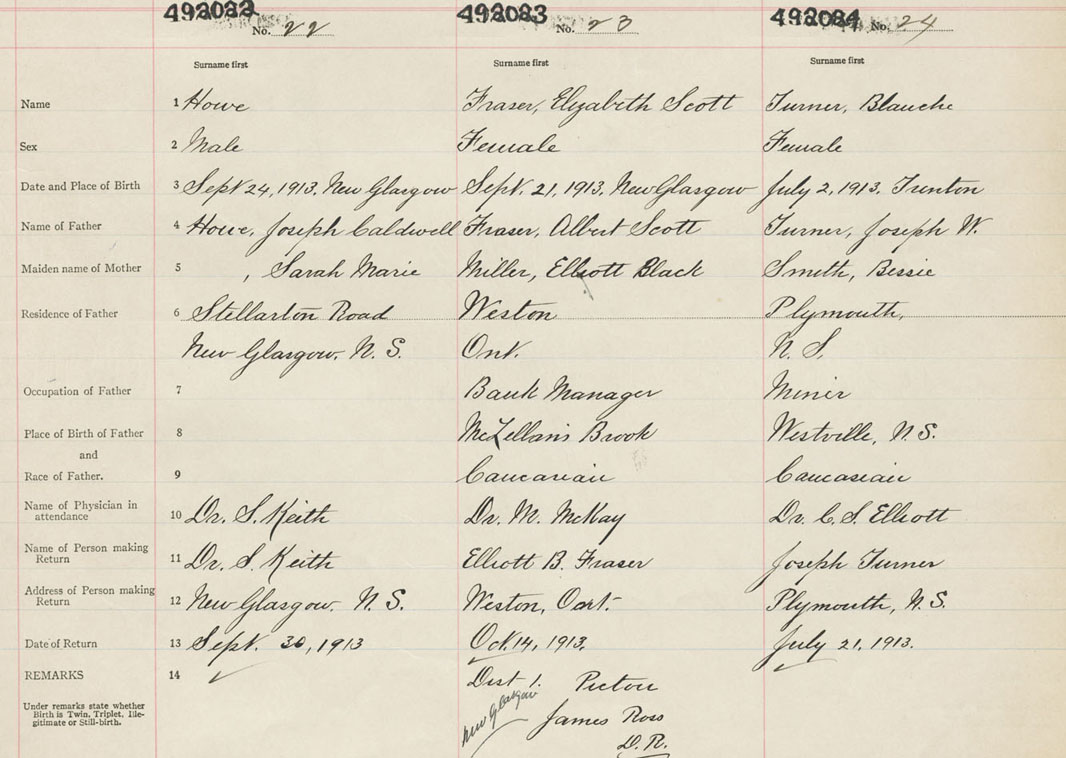 492022 492023 492024
No. 22 No. 23 No. 24
Surname first Surname first Surname first
Name 1 Howe Fraser, Elizabeth Scott Turner, Blanche
Sex 2 Male Female Female
Date and Place of Birth 3 Sept 24, 1913, New Glasgow Sept. 21, 1913, New Glasgow July 2, 1913. Trenton
Name of Father 4 Howe, Joseph Caldwell Fraser, Albert Scott Turner, Joseph W.
Maiden name of Mother 5 , Sarah Marie Miller, Elliott Black Smith, Bessie
Residence of Father 6 Stellarton Road Weston Plymouth,
New Glasgow. N. S. Ont. N. S.
Occupation of Father 7 Bank Manager Miner
Place of Birth of Father 8 McLellan's Brook Westville, N.S.
and
Race of Father. 9 Caucasian Caucasian
Name of Physician in
attendance 10 Dr. S. Keith Dr. M. McKay Dr. C. S. Elliott
Name of Person making
Return 11 Dr. S. Keith Elliott B. Fraser Joseph Turner
Address of Person making
Return 12 New Glasgow. N. S. Weston, Ont. Plymouth, N.S.
Date of Return 13 Sept. 30, 1913 Oct. 14, 1913. July 21, 1913.
REMARKS 14 Dist 1. Pictou
Under remarks state whether
Birth is Twin, Triplet, Ille-
gitimate or Still-birth.
New Glasgow James Ross
D.R.